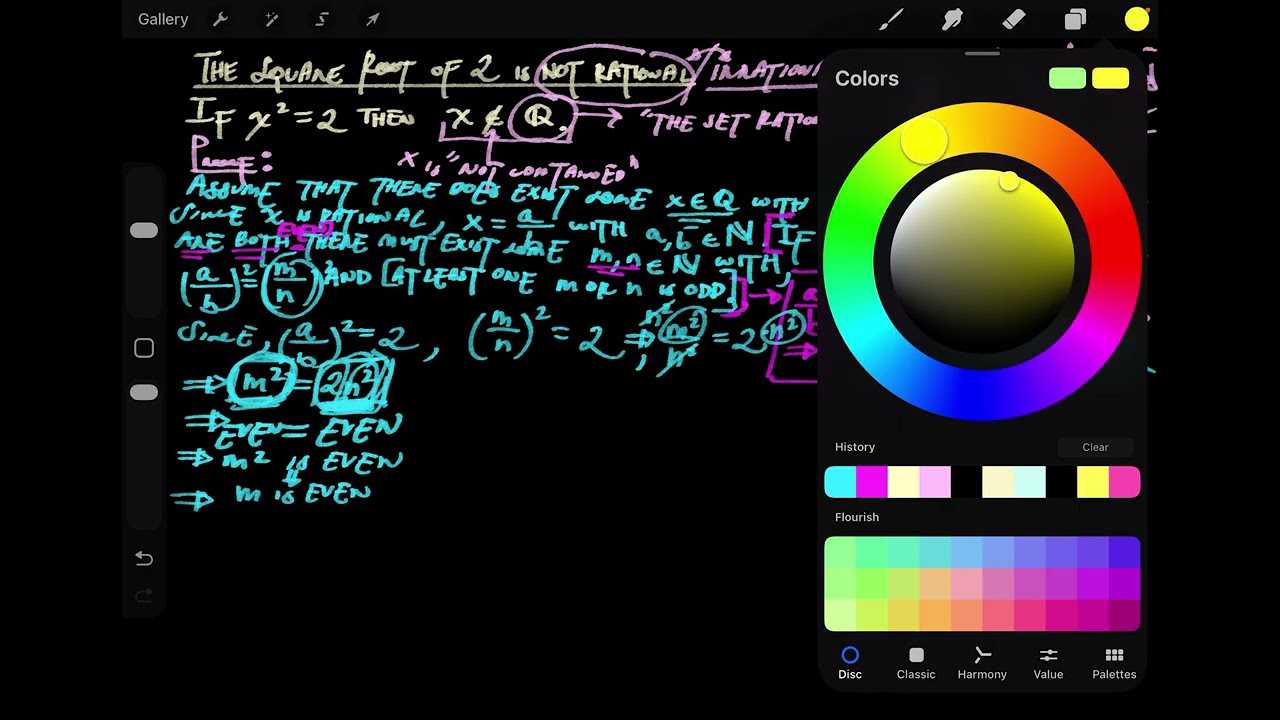 Gallery
THE SQUARE ROOT OF 2 IS NOT RATIONAL / IRRATION
IF x² = 2 THEN x ∉ ℚ, → "THE SET RATION
PROOF: x is "NOT CONTAINED"
ASSUME THAT THERE DOES EXIST SOME x ∈ ℚ WITH
SINCE x IS RATIONAL, x = a/b WITH a, b ∈ ℕ. [IF
EVEN
ARE BOTH THERE MUST EXIST SOME m, n ∈ ℕ WITH,
(a/b)² = (m/n)² AND [AT LEAST ONE m OR n IS ODD] →
SINCE, (a/b)² = 2, (m/n)² = 2 ⇒, n² m²/n² = 2·n²
⇒ m² = 2n²
⇒ EVEN = EVEN
⇒ m² is EVEN
⇒ m is EVEN
Colors
History
Clear
Flourish
Disc
Classic
Harmony
Value
Palettes